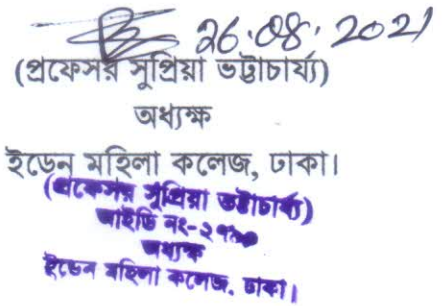 26.08.2021
(প্রফেসর সুপ্রিয়া ভট্টাচার্য্য)
অধ্যক্ষ
ইডেন মহিলা কলেজ, ঢাকা।
(প্রফেসর সুপ্রিয়া ভট্টাচার্য্য)
আইডি নং-
অধ্যক্ষ
ইডেন মহিলা কলেজ, ঢাকা।